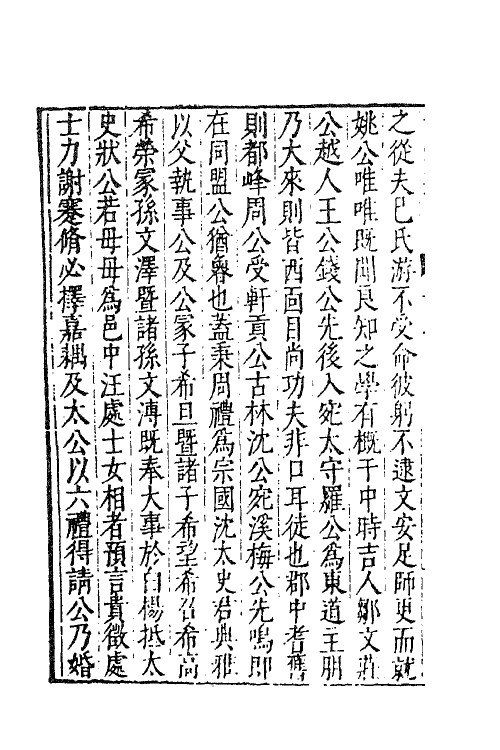 之從夫已氏游不受命彼躬不逮文安足師更而就
姚公唯唯既聞良知之學有概于中時吉人鄒文莊
公越人王公錢公先後入宛太守羅公爲東道主朋
乃大來則皆西面目尚功夫非口耳徒也郡中耆舊
則都峰周公受軒貢公古林沈公宛溪梅公先鳴即
在同盟公猶魯也蓋秉周禮爲宗國沈太史君典雅
以父執事公及公冢子希旦暨諸子希望希召希高
希榮冢孫文澤暨諸孫文溥既奉大事於白楊抵太
史狀公若母母爲邑中汪處士女相者預言貴徵處
士力謝蹇脩必擇嘉耦及太公以六禮得請公乃婚